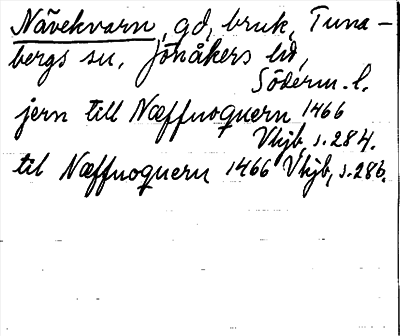 Nävekvarn, gd, bruk, Tuna-
bergs sn, Jönåkers hd,
Söderm. l.
jern till Næffuoquern 1466
Vhjb, s. 284.
til Næffuoquern 1466 Vhjb, s. 286.